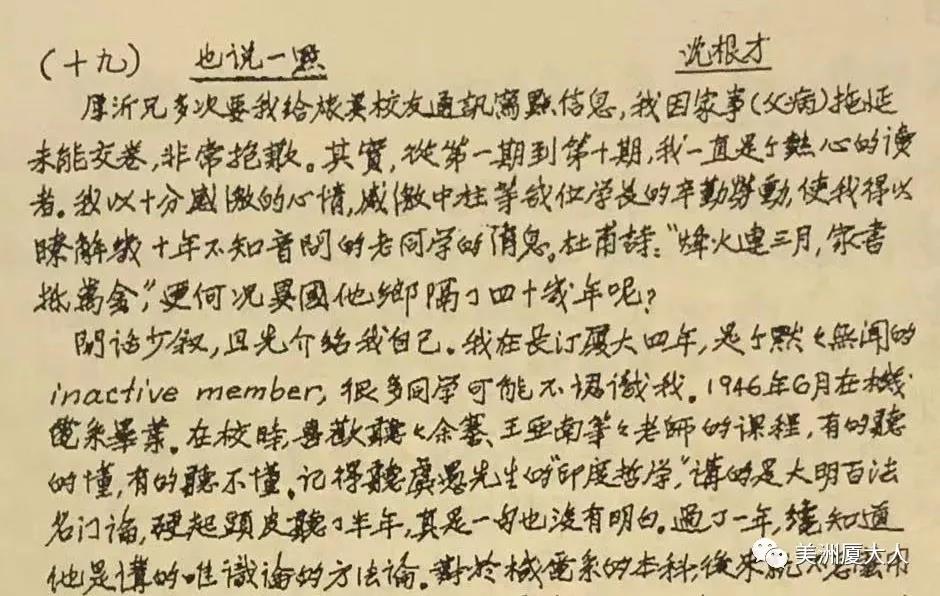 (十九) 也说一點 沈根才
厚沂兄多次要我给旅美校友通訊寫點信息,我因家事(父病)拖延
未能交卷,非常抱歉。其實,從第一期到第十期,我一直是个熱心的讀
者。我以十分感激的心情,感激中柱等幾位学長的辛勤勞動,使我得以
瞭解幾十年不知音問的老同学的消息。杜甫詩:“烽火連三月,家書
抵萬金”,更何况異國他鄉隔了四十幾年呢?
閒話少叙,且先介绍我自己。我在長汀厦大四年,是个默々無闻的
inactive member,很多同学可能不認識我。1946年6月在機
電系畢業。在校時,喜歡聽々余謇、王亚南等々老師的课程,有的聽
的懂,有的聽不懂。记得聽虞愚先生的“印度哲学”,講的是大明百法
名门論,硬起頭皮聽了半年,真是一句也没有明白。過了一年,纔知道
他是講的唯識論的方法論。對於機電系的本科,後來就
美洲厦大人